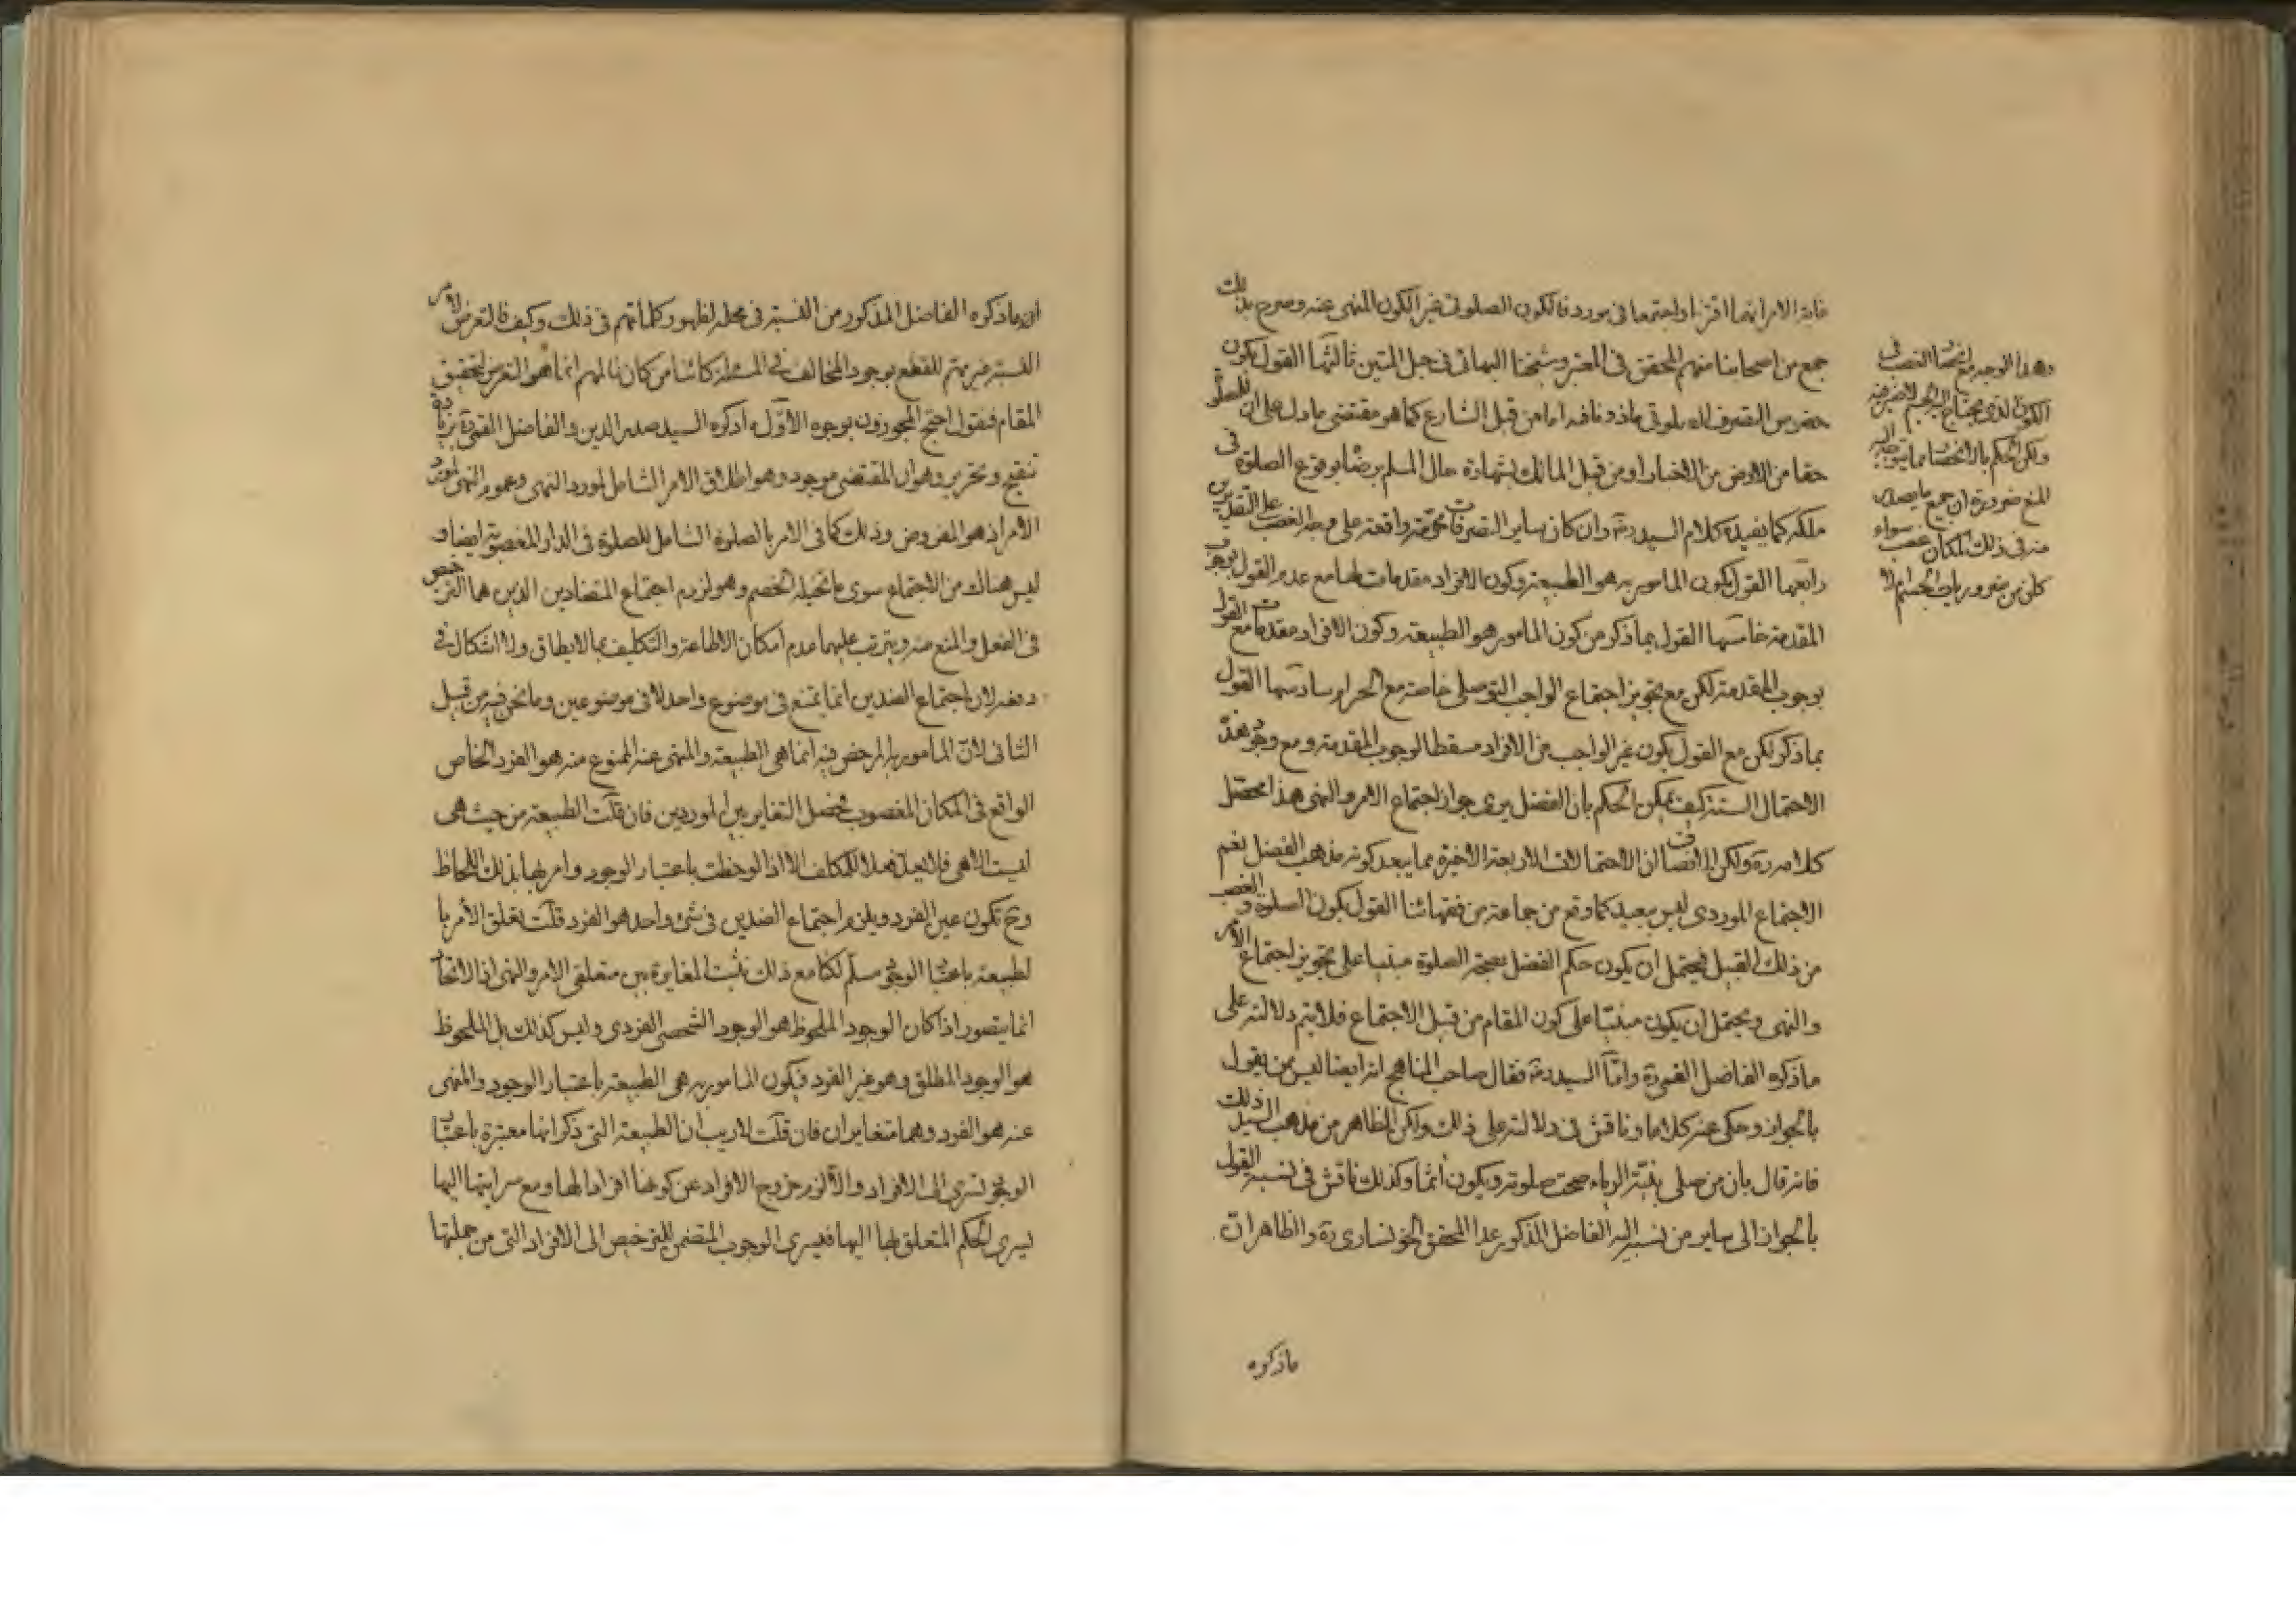 غاية الامر انهما اقترنا واجتمعا فى مورد فالكون الصلوتى غير الكون المنهى عنه وصرح بذلك
جمع من اصحابنا منهم المحقق فى المعتبر وشيخنا البهائى فى حبل المتين ثالثها القول بكون
خصوص التصرف الصلوتى ماذونا فيه اما من قبل الشارع كما هو مقتضى ما دل على ان للمصلى
حقا من الارض من الاخبار او من قبل المالك بشهادة حال المسلم برضا بوقوع الصلوة فى
ملكه كما يفيده كلام السيد ره وان كان ساير التصرفات محرمة واقعة على وجه الغصب على التقديرين
رابعها القول بكون المامور به هو الطبيعة وكون الافراد مقدمات لها مع عدم القول بوجوب
المقدمة خامسها القول بما ذكر من كون المامور هو الطبيعة وكون الافراد مقدمات مع القول
بوجوب المقدمة لكن مع تجويز اجتماع الواجب التوصلى خاصة مع الحرام سادسها القول
بما ذكر لكن مع القول بكون غير الواجب من الافراد مسقطا لوجوب المقدمة ومع وجود هذه
الاحتمالات الستة كيف يمكن الحكم بان الفضل يرى جواز اجتماع الامر والنهى هذا محصل
كلامه ره ولكن الانصاف ان الاحتمالات الاربعة الاخيرة مما يبعد كونه مذهب الفضل نعم
الاجتماع الموردى ليس ببعيد كما وقع من جماعة من فقهائنا القول بكون الصلوة والغصب
من ذلك القبيل فيحتمل ان يكون حكم الفضل بصحة الصلوة مبنيا على تجويز اجتماع الامر
والنهى ويحتمل ان يكون مبنيا على كون المقام من قبل الاجتماع فلا يتم دلالته على
ما ذكره الفاضل القمى ره واما السيد ره فقال صاحب المناهج انه ايضا ليس ممن يقول
بالجواز وحكى عنه كلاما وناقش فى دلالته على ذلك ولكن الظاهر من مذهب السيد ذلك
فانه قال بان من صلى بنية الرياء صحت صلوته ويكون آثما وكذلك ناقش فى نسبة القول
بالجواز الى ساير من نسبه اليه الفاضل المذكور عدا المحقق الخونسارى ره والظاهر ان
ما ذكره
وهذا الوجه مع اختصاص الغصب فى
الكون الذى يحتاج اليه الجسم لا ضير فيه
ولكن الحكم بالاختصاص مما يتوجه اليه
المنع ضرورة ان جميع ما يصدر
منه فى ذلك المكان غصب سواء
كان من ضروريات الجسم ام لا
ان ما ذكره الفاضل المذكور من النسبة فى محله لظهور كلماتهم فى ذلك وكيف كان فالتعرض لامر
النسبة غير مهم للقطع بوجود المخالف فى المسئلة كائنا من كان فالمهم انما هو التعرض لتحقيق
المقام فنقول احتج المجوزون بوجوه الاول ما ذكره السيد صدر الدين والفاضل القمى ره بزيادة
تنقيح وتحرير وهو ان المقتضى موجود وهو اطلاق الامر الشامل لمورد النهى وعموم النهى لمورد
الامر اذ هو المفروض وذلك كما فى الامر بالصلوة الشامل للصلوة فى الدار المغصوبة ايضا و
ليس هناك من الاجتماع سوى ما تخيله الخصم وهو لزوم اجتماع المتضادين الذين هما الترخيص
فى الفعل والمنع منه ويترتب عليهما عدم امكان الاطاعة والتكليف بما لا يطاق ولا اشكال فى
دفعه لان اجتماع الضدين انما يمتنع فى موضوع واحد لا فى موضوعين وما نحن فيه من قبيل
الثانى لان المامور به المرخص فيه انما هى الطبيعة والمنهى عنه الممنوع منه هو الفرد الخاص
الواقع فى المكان المغصوب فحصل التغاير بين الموردين فان قلت الطبيعة من حيث هى
ليست الا هى فلا يعد فعلا للمكلف الا اذا لوحظت باعتبار الوجود وامر بها بذلك اللحاظ
وح تكون عين الفرد ويلزم اجتماع الضدين فى شئ واحد هو الفرد قلت تعلق الامر با
لطبيعة باعتبار الوجود مسلم لكنا مع ذلك نثبت المغايرة بين متعلقى الامر والنهى اذ الاتحاد
انما يتصور اذا كان الوجود الملحوظ هو الوجود الشخصى الفردى وليس كذلك بل الملحوظ
هو الوجود المطلق وهو غير الفرد فيكون المامور به هى الطبيعة باعتبار الوجود والمنهى
عنه هو الفرد وهما متغايران فان قلت لا ريب ان الطبيعة التى ذكر انها معتبرة باعتبار
الوجود تسرى الى الافراد والا لزم خروج الافراد عن كونها افرادا لها ومع سرايتها اليها
يسرى الحكم المتعلق بها اليها فيسرى الوجوب المتضمن للترخيص الى الافراد التى من جملتها